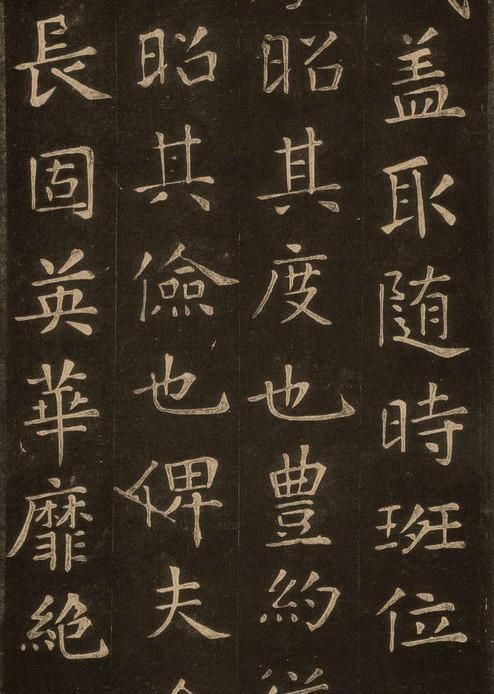 盖取随時班位
昭其度也豊約
昭其儉也俾夫
長固英華靡絶